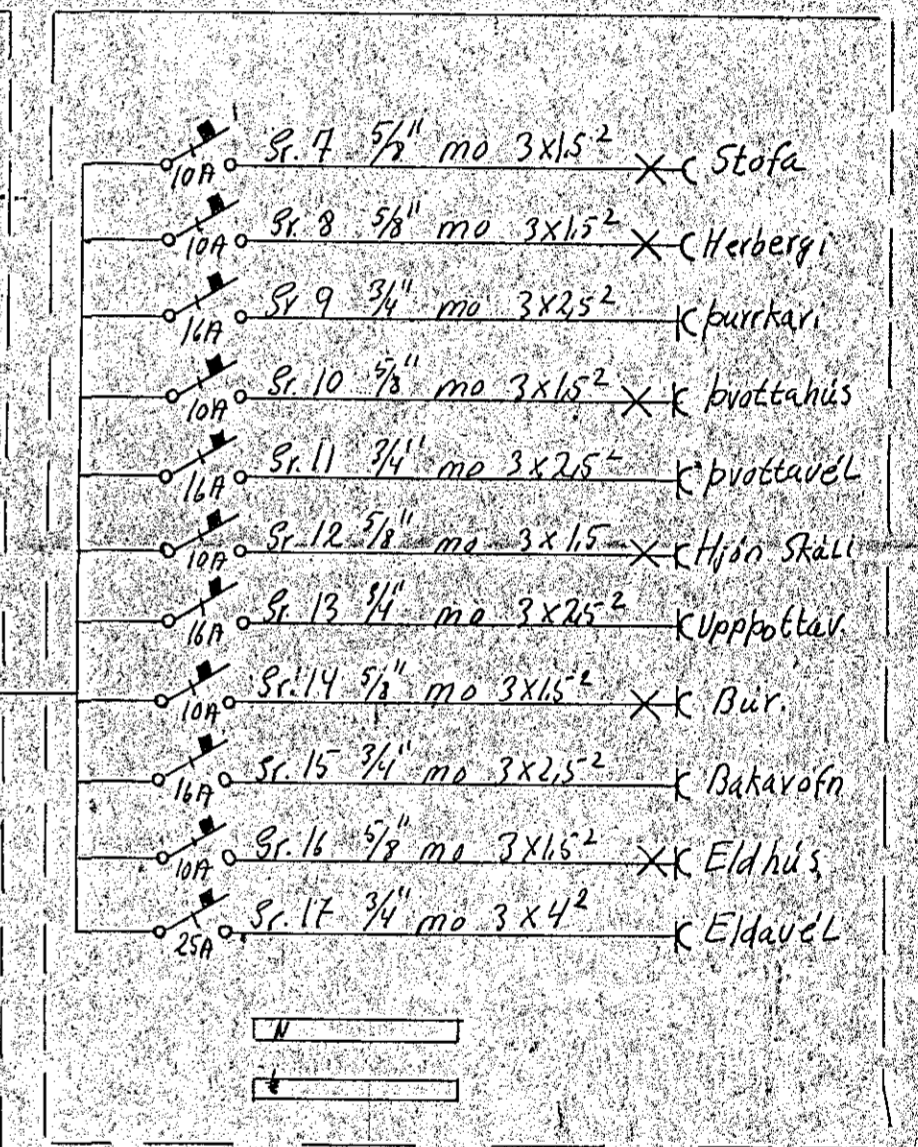 10A Gr. 7 5/8" mo 3x1,5² Stofa
10A Gr. 8 5/8" mo 3x1,5² Herbergi
16A Gr 9 3/4" mo 3x2,5² þurrkari
10A Gr. 10 5/8" mo 3x1,5² þvottahús
16A Gr. 11 3/4" mo 3x2,5² þvottavél
10A Gr. 12 5/8" mo 3x1,5 Hjón Skáli
16A Gr. 13 3/4" mo 3x2,5² Uppþottav.
10A Gr. 14 5/8" mo 3x1,5² Búr.
16A Gr. 15 3/4" mo 3x2,5² Bakarofn
10A Gr. 16 5/8" mo 3x1,5² Eldhús
25A Gr. 17 3/4" mo 3x4² Eldavél
N